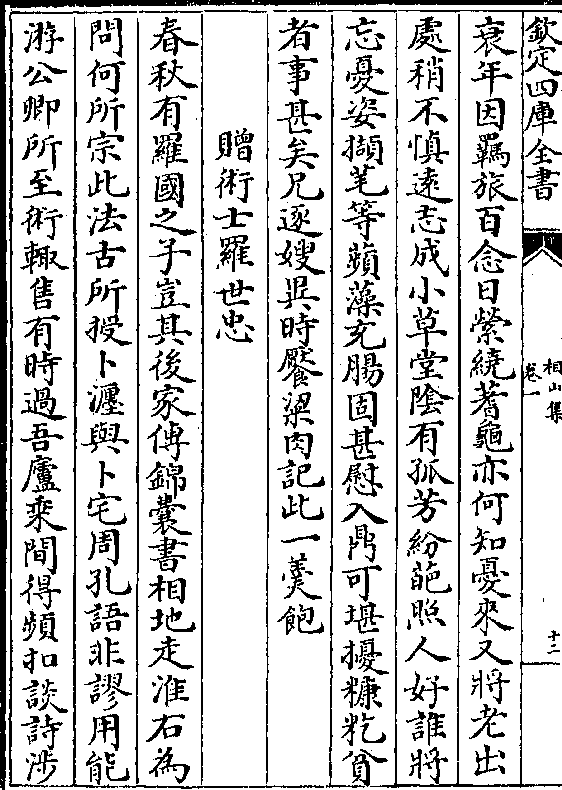 欽定四庫全書
相山集
卷一
十二
衰年因羈旅百念日縈繞蓍龜亦何知憂來又將老出
處稍不慎遠志成小草堂陰有孤芳紛葩照人好誰將
忘憂姿擷芼等蘋藻充腸固甚慰入鼎可堪擾糠籺貧
者事甚矣兄逐嫂異時饜粱肉記此一羮飽
贈術士羅世忠
春秋有羅國之子豈其後家傳錦囊書相地走淮右為
問何所宗此法古所授卜瀍與卜宅周孔語非謬用能
游公卿所至術輙售有時過吾廬乗間得頻扣談詩渉